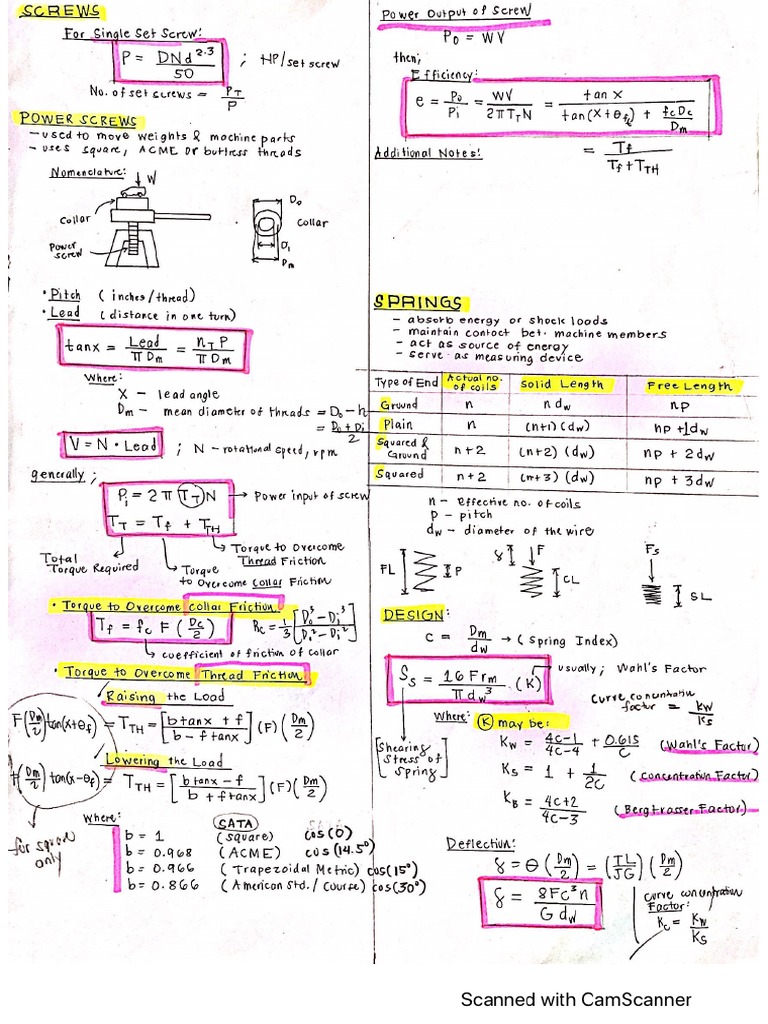 SCREWS
For Single Set Screw:
P = DNd^2.3 / 50 ; HP/set screw
No. of set screws = P_T / P
POWER SCREWS
- used to move weights & machine parts
- uses square, ACME or buttress threads
Nomenclature:
W
Collar
Power screw
D_o
Collar
D_i
D_m
• Pitch (inches/thread)
• Lead (distance in one turn)
tan x = Lead / π D_m = n_T P / π D_m
Where:
X - lead angle
D_m - mean diameter of threads = D_o - h
= D_o + D_i / 2
V = N • Lead ; N - rotational speed, rpm
generally ;
P_i = 2π (T_T) N → Power input of screw
T_T = T_f + T_TH
Total Torque Required
Torque to Overcome Collar Friction
Torque to Overcome Thread Friction
• Torque to Overcome Collar Friction
T_f = f_c F (D_c / 2)
R_c = 1/3 [D_o^3 - D_i^3 / D_o^2 - D_i^2]
coefficient of friction of collar
• Torque to Overcome Thread Friction
Raising the Load
F(D_m/2) tan(x+θ_f) = T_TH = [b tan x + f / b - f tan x] (F) (D_m/2)
Lowering the Load
F(D_m/2) tan(x-θ_f) = T_TH = [b tan x - f / b + f tan x] (F) (D_m/2)
for square only
where:
SATA
b = 1 (square) cos(0)
b = 0.968 (ACME) cos(14.5°)
b = 0.966 (Trapezoidal Metric) cos(15°)
b = 0.866 (American Std. / Course) cos(30°)
Power Output of Screw
P_o = WV
then;
Efficiency:
e = P_o / P_i = WV / 2π T_T N = tan x / tan(x+θ_f) + f_c D_c / D_m
Additional Notes:
= T_f / T_f + T_TH
SPRINGS
- absorb energy or shock loads
- maintain contact bet. machine members
- act as source of energy
- serve as measuring device
Type of End | Actual no. of coils | Solid Length | Free Length
Ground | n | n d_w | np
Plain | n | (n+1)(d_w) | np + 1d_w
Squared & Ground | n+2 | (n+2)(d_w) | np + 2d_w
Squared | n+2 | (n+3)(d_w) | np + 3d_w
n - effective no. of coils
p - pitch
d_w - diameter of the wire
FL
P
δ
F
CL
F_s
SL
DESIGN:
C = D_m / d_w → (Spring Index)
S_s = 16 F r_m / π d_w^3 (K) usually; Wahl's Factor
curve concentration factor = K_W / K_S
[Shearing Stress of Spring]
Where: (K) may be:
K_W = 4C-1 / 4C-4 + 0.615 / C (Wahl's Factor)
K_S = 1 + 1 / 2C (Concentration Factor)
K_B = 4C+2 / 4C-3 (Bergtrasser Factor)
Deflection:
δ = θ (D_m/2) = (TL/JG) (D_m/2)
δ = 8FC^3 n / G d_w
curve concentration Factor:
K_c = K_W / K_S
Scanned with CamScanner